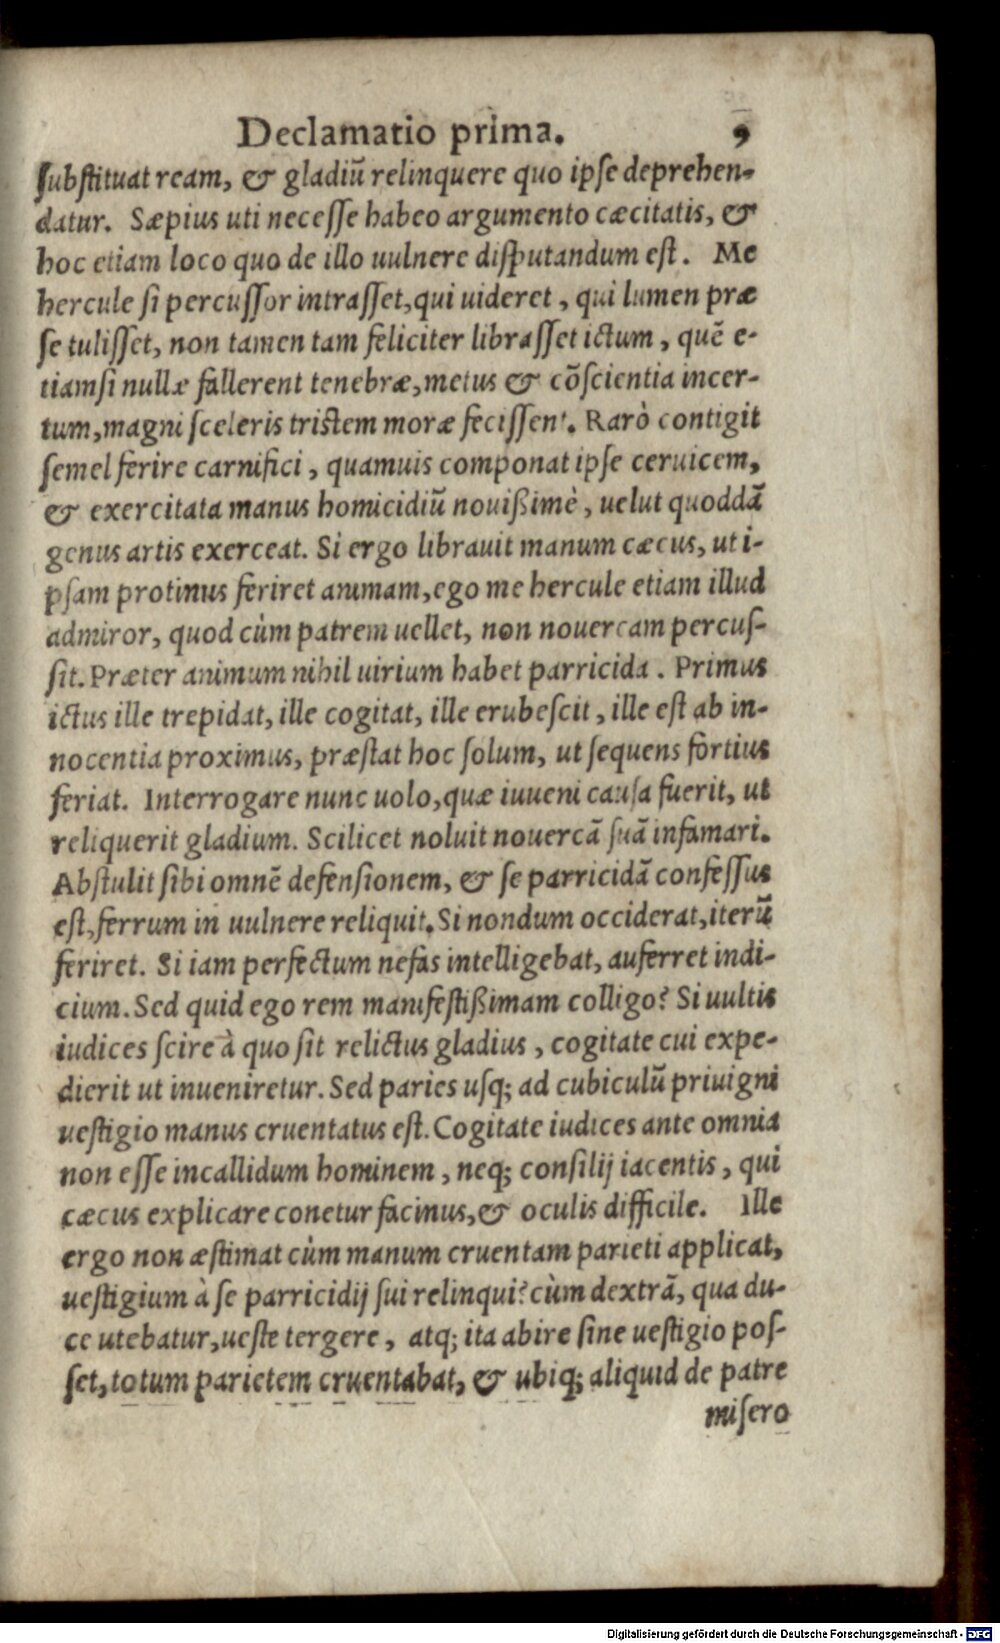 Declamatio prima. 9
substituat ream, & gladiū relinquere quo ipse deprehen-
datur. Sæpius uti necesse habeo argumento cæcitatis, &
hoc etiam loco quo de illo uulnere disputandum est. Me
hercule si percussor intrasset, qui uideret, qui lumen præ
se tulisset, non tamen tam feliciter librasset ictum, quē e-
tiamsi nullæ fallerent tenebræ, metus & cōscientia incer-
tum, magni sceleris tristem moræ fecissent. Rarò contigit
semel ferire carnifici, quamuis componat ipse ceruicem,
& exercitata manus homicidiū nouißimè, uelut quoddā
genus artis exerceat. Si ergo librauit manum cæcus, ut i-
psam protinus feriret animam, ego me hercule etiam illud
admiror, quod cùm patrem uellet, non nouercam percus-
sit. Præter animum nihil uirium habet parricida. Primus
ictus ille trepidat, ille cogitat, ille erubescit, ille est ab in-
nocentia proximus, præstat hoc solum, ut sequens fortius
feriat. Interrogare nunc uolo, quæ iuueni causa fuerit, ut
reliquerit gladium. Scilicet noluit nouercā suā infamari.
Abstulit sibi omnē defensionem, & se parricidā confessus
est, ferrum in uulnere reliquit. Si nondum occiderat, iterū
feriret. Si iam perfectum nefas intelligebat, auferret indi-
cium. Sed quid ego rem manifestißimam colligo? Si uultis
iudices scire à quo sit relictus gladius, cogitate cui expe-
dierit ut inueniretur. Sed paries usq; ad cubiculū priuigni
uestigio manus cruentatus est. Cogitate iudices ante omnia
non esse incallidum hominem, neq; consilij iacentis, qui
cæcus explicare conetur facinus, & oculis difficile. Ille
ergo non æstimat cùm manum cruentam parieti applicat,
uestigium à se parricidij sui relinqui? cùm dextrā, qua du-
ce utebatur, ueste tergere, atq; ita abire sine uestigio pos-
set, totum parietem cruentabat, & ubiq; aliquid de patre
misero
Digitalisierung gefördert durch die Deutsche Forschungsgemeinschaft - DFG